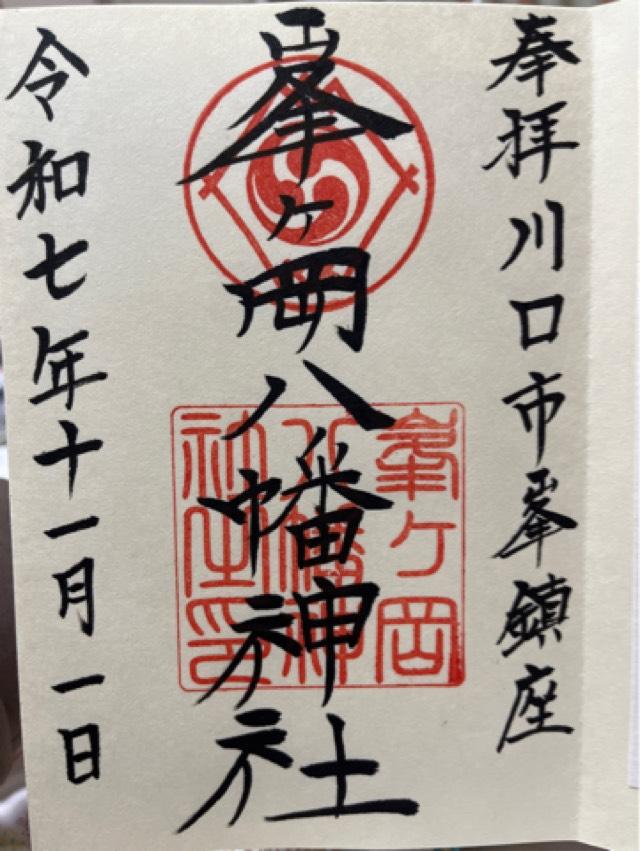 奉拝川口市峯鎮座
峯ヶ岡八幡神社
峯ヶ岡
八幡神
社之印
令和七年十一月一日